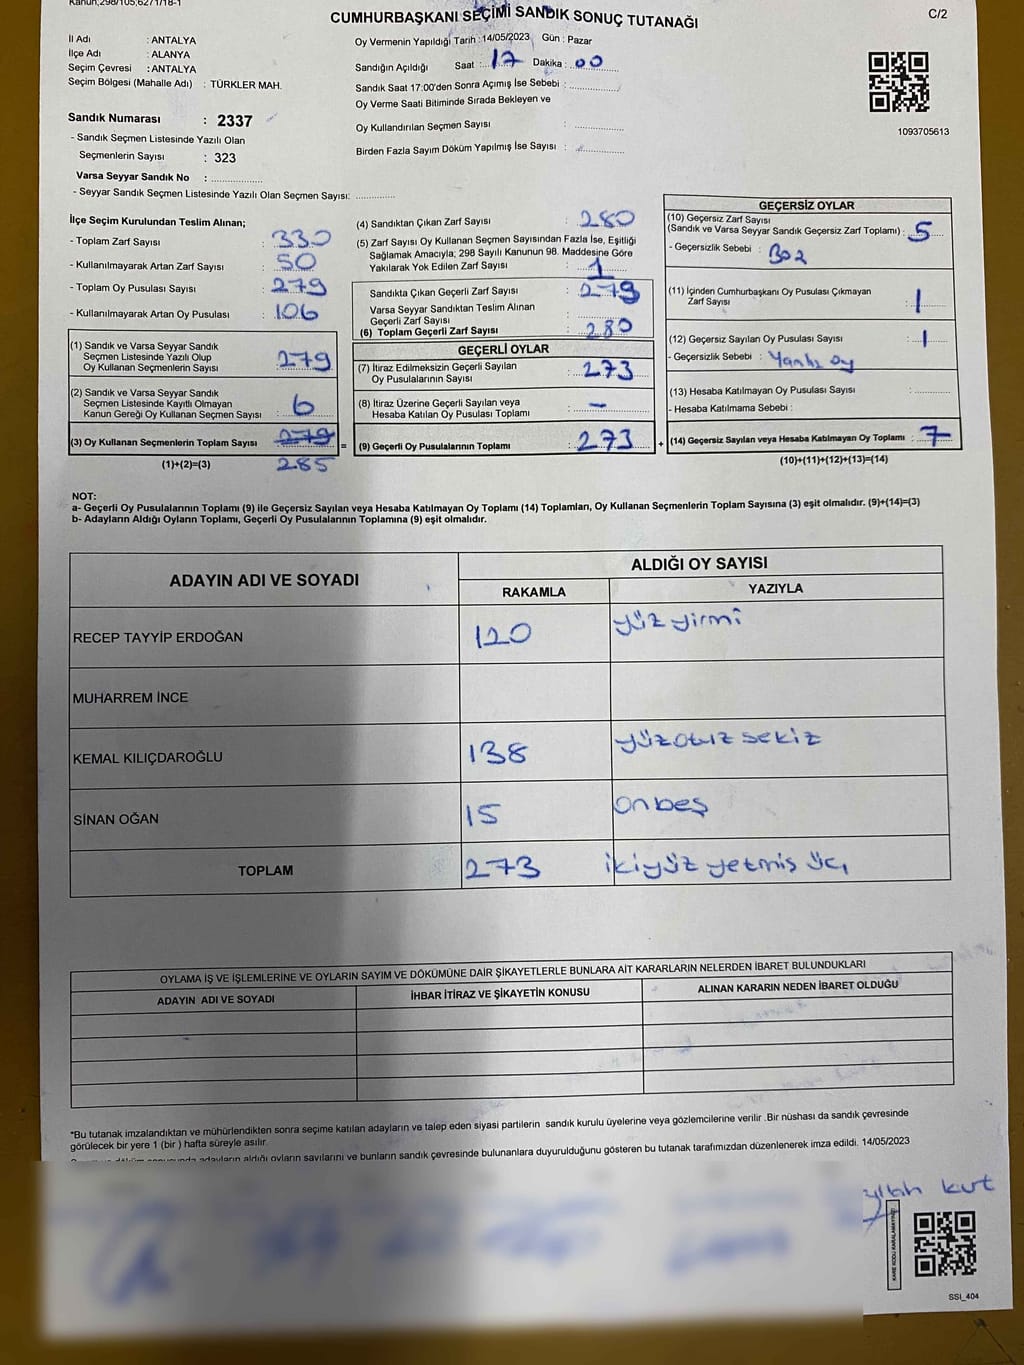 Kanun;298/105,62/1/18-1
CUMHURBAŞKANI SEÇİMİ SANDIK SONUÇ TUTANAĞI
C/2
İl Adı : ANTALYA
İlçe Adı : ALANYA
Seçim Çevresi : ANTALYA
Seçim Bölgesi (Mahalle Adı) : TÜRKLER MAH.
Sandık Numarası : 2337
- Sandık Seçmen Listesinde Yazılı Olan
Seçmenlerin Sayısı : 323
Varsa Seyyar Sandık No :
- Seyyar Sandık Seçmen Listesinde Yazılı Olan Seçmen Sayısı:
Oy Vermenin Yapıldığı Tarih :14/05/2023 Gün : Pazar
Sandığın Açıldığı Saat : 17 Dakika : 00
Sandık Saat 17:00'den Sonra Açımış İse Sebebi :
Oy Verme Saati Bitiminde Sırada Bekleyen ve
Oy Kullandırılan Seçmen Sayısı :
Birden Fazla Sayım Döküm Yapılmış İse Sayısı :
1093705613
İlçe Seçim Kurulundan Teslim Alınan;
- Toplam Zarf Sayısı : 330
- Kullanılmayarak Artan Zarf Sayısı : 50
- Toplam Oy Pusulası Sayısı : 279
- Kullanılmayarak Artan Oy Pusulası : 106
(1) Sandık ve Varsa Seyyar Sandık
Seçmen Listesinde Yazılı Olup
Oy Kullanan Seçmenlerin Sayısı : 279
(2) Sandık ve Varsa Seyyar Sandık
Seçmen Listesinde Kayıtlı Olmayan
Kanun Gereği Oy Kullanan Seçmen Sayısı : 6
(3) Oy Kullanan Seçmenlerin Toplam Sayısı : 279 =
(1)+(2)=(3) 285
(4) Sandıktan Çıkan Zarf Sayısı : 280
(5) Zarf Sayısı Oy Kullanan Seçmen Sayısından Fazla İse, Eşitliği
Sağlamak Amacıyla; 298 Sayılı Kanunun 98. Maddesine Göre
Yakılarak Yok Edilen Zarf Sayısı : 1
Sandıkta Çıkan Geçerli Zarf Sayısı : 279
Varsa Seyyar Sandıktan Teslim Alınan
Geçerli Zarf Sayısı :
(6) Toplam Geçerli Zarf Sayısı : 280
GEÇERLİ OYLAR
(7) İtiraz Edilmeksizin Geçerli Sayılan
Oy Pusulalarının Sayısı : 273
(8) İtiraz Üzerine Geçerli Sayılan veya
Hesaba Katılan Oy Pusulası Toplamı : -
(9) Geçerli Oy Pusulalarının Toplamı : 273 +
GEÇERSİZ OYLAR
(10) Geçersiz Zarf Sayısı
(Sandık ve Varsa Seyyar Sandık Geçersiz Zarf Toplamı) : 5
- Geçersizlik Sebebi : Boş
(11) İçinden Cumhurbaşkanı Oy Pusulası Çıkmayan
Zarf Sayısı : 1
(12) Geçersiz Sayılan Oy Pusulası Sayısı : 1
- Geçersizlik Sebebi : Yanlış oy
(13) Hesaba Katılmayan Oy Pusulası Sayısı :
- Hesaba Katılmama Sebebi :
(14) Geçersiz Sayılan veya Hesaba Katılmayan Oy Toplamı : 7
(10)+(11)+(12)+(13)=(14)
NOT:
a- Geçerli Oy Pusulalarının Toplamı (9) ile Geçersiz Sayılan veya Hesaba Katılmayan Oy Toplamı (14) Toplamları, Oy Kullanan Seçmenlerin Toplam Sayısına (3) eşit olmalıdır. (9)+(14)=(3)
b- Adayların Aldığı Oyların Toplamı, Geçerli Oy Pusulalarının Toplamına (9) eşit olmalıdır.
ADAYIN ADI VE SOYADI
ALDIĞI OY SAYISI
RAKAMLA YAZIYLA
RECEP TAYYİP ERDOĞAN 120 yüz yirmi
MUHARREM İNCE
KEMAL KILIÇDAROĞLU 138 yüzotuz sekiz
SİNAN OĞAN 15 onbeş
TOPLAM 273 ikiyüz yetmiş üç
OYLAMA İŞ VE İŞLEMLERİNE VE OYLARIN SAYIM VE DÖKÜMÜNE DAİR ŞİKAYETLERLE BUNLARA AİT KARARLARIN NELERDEN İBARET BULUNDUKLARI
ADAYIN ADI VE SOYADI İHBAR İTİRAZ VE ŞİKAYETİN KONUSU ALINAN KARARIN NEDEN İBARET OLDUĞU
*Bu tutanak imzalandıktan ve mühürlendikten sonra seçime katılan adayların ve talep eden siyasi partilerin sandık kurulu üyelerine veya gözlemcilerine verilir .Bir nüshası da sandık çevresinde
görülecek bir yere 1 (bir ) hafta süreyle asılır.
adayların aldığı oyların sayılarını ve bunların sandık çevresinde bulunanlara duyurulduğunu gösteren bu tutanak tarafımızdan düzenlenerek imza edildi. 14/05/2023
kut
KARE KODU KARALAMAYINIZ
SSI_404